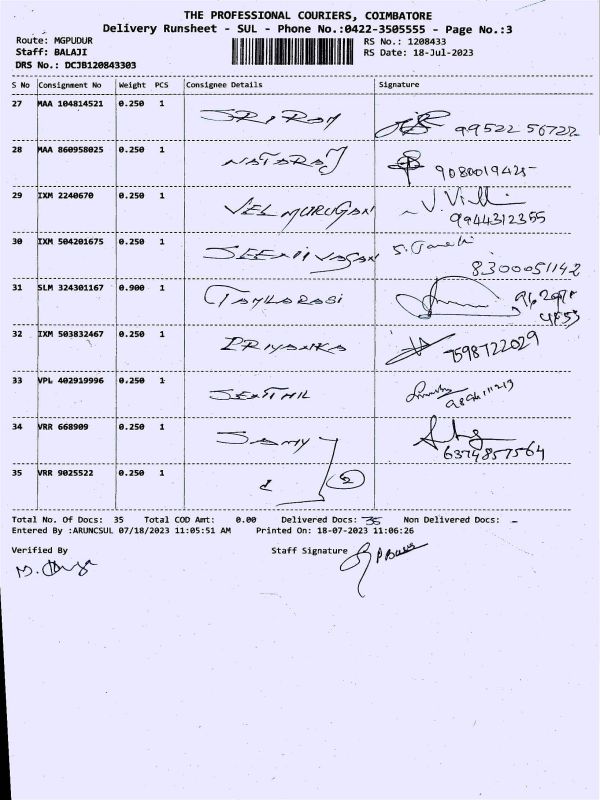 THE PROFESSIONAL COURIERS, COIMBATORE
Delivery Runsheet - SUL - Phone No.:0422-3505555 - Page No.:3
Route: MGPUDUR
RS No.: 1208433
Staff: BALAJI
RS Date: 18-Jul-2023
DRS No.: DCJB120843303
S No Consignment No Weight PCS Consignee Details Signature
27 MAA 104814521 0.250 1 SRIRAM 99522 56722
28 MAA 860958025 0.250 1 NATARAJ 9080019425
29 IXM 2240670 0.250 1 VELMURUGAN
9944312355
30 IXM 504201675 0.250 1 SEENIVASAN
8300051142
31 SLM 324301167 0.900 1
32 IXM 503832467 0.250 1 PRIYANKA 7598722029
33 VPL 402919996 0.250 1 SENTHIL
34 VRR 668909 0.250 1 SAMY
6374857564
35 VRR 9025522 0.250 1 2
Total No. Of Docs: 35 Total COD Amt: 0.00 Delivered Docs: 35 Non Delivered Docs: -
Entered By :ARUNCSUL 07/18/2023 11:05:51 AM Printed On: 18-07-2023 11:06:26
Verified By Staff Signature